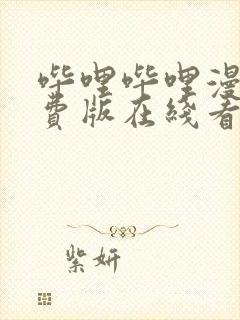 哔哩哔哩漫
费版在线看
紫妍